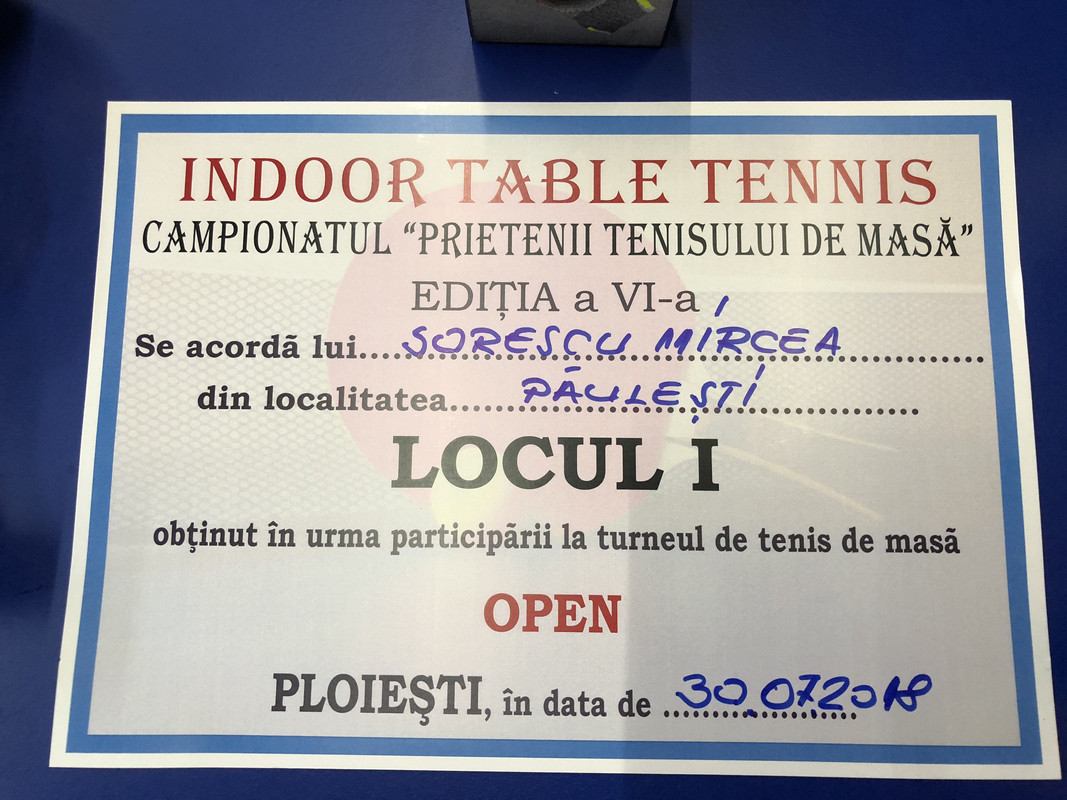 INDOOR TABLE TENNIS
CAMPIONATUL “PRIETENII TENISULUI DE MASĂ”
EDIȚIA a VI-a
Se acordã lui....SORESCU MIRCEA..............
din localitatea.......PĂULEȘTI................
LOCUL I
obținut în urma participãrii la turneul de tenis de masã
OPEN
PLOIEŞTI, în data de 30.07.2018